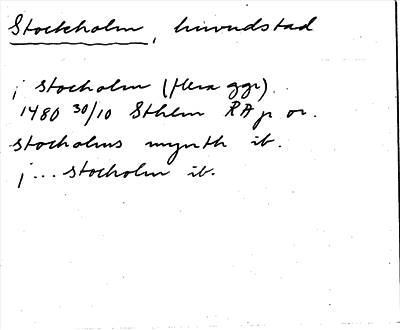 Stockholm, huvudstad
j stocholm (flera ggr)
1480 30/10 Sthlm RA p or.
stocholms mynth ib.
j... stocholm ib.